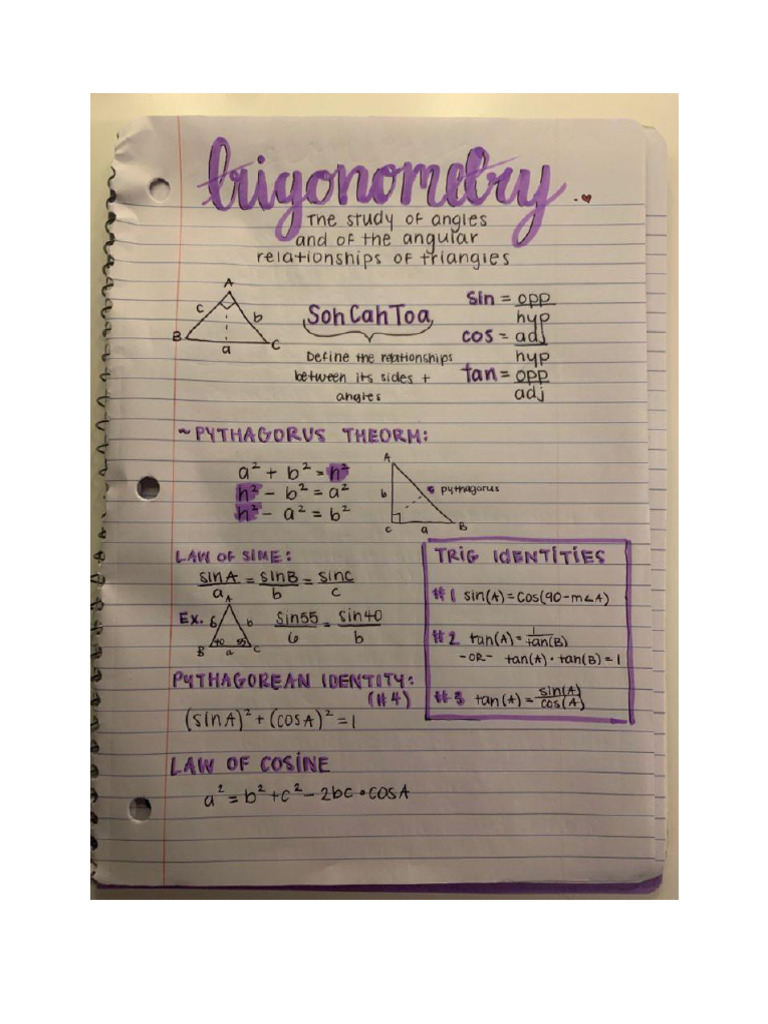 trigonometry
The study of angles
and of the angular
relationships of triangles
A
c b
B a C
SohCahToa
Define the relationships
between its sides +
angles
sin = opp
hyp
cos = adj
hyp
tan = opp
adj
~PYTHAGORUS THEORM:
a² + b² = h²
h² - b² = a²
h² - a² = b²
A
b
pythagorus
C a B
LAW OF SINE:
sinA = sinB = sinC
a b c
Ex.
A
6 b
40 55
B a C
sin55 = sin40
6 b
TRIG IDENTITIES
#1 sin(A)=cos(90-m∠A)
#2 tan(A)= 1
tan(B)
-OR- tan(A)·tan(B)=1
#3 tan(A)= sin(A)
cos(A)
PYTHAGOREAN IDENTITY:
(#4)
(sinA)²+(cosA)²=1
LAW OF COSINE
a²=b²+c²-2bc·cosA